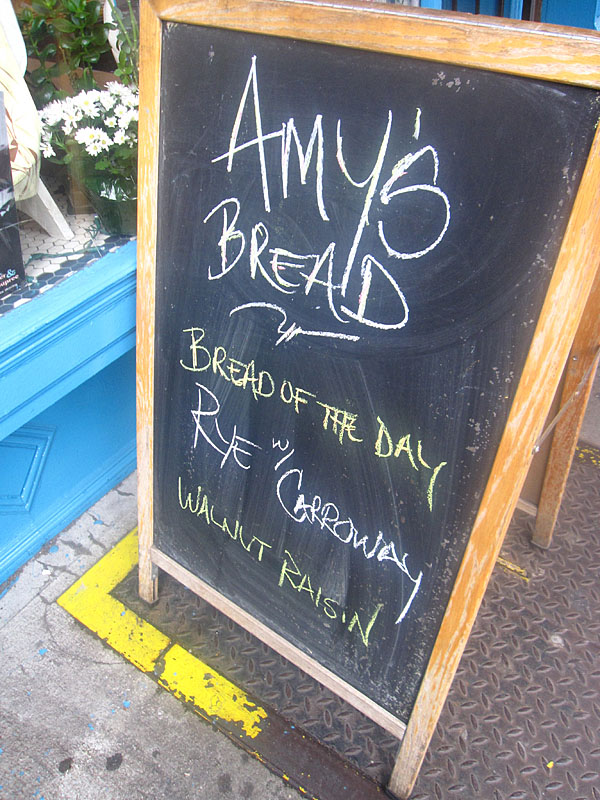 AMY'S
BREAD
BREAD OF THE DAY
RYE w/ CARROWAY
WALNUT RAISIN